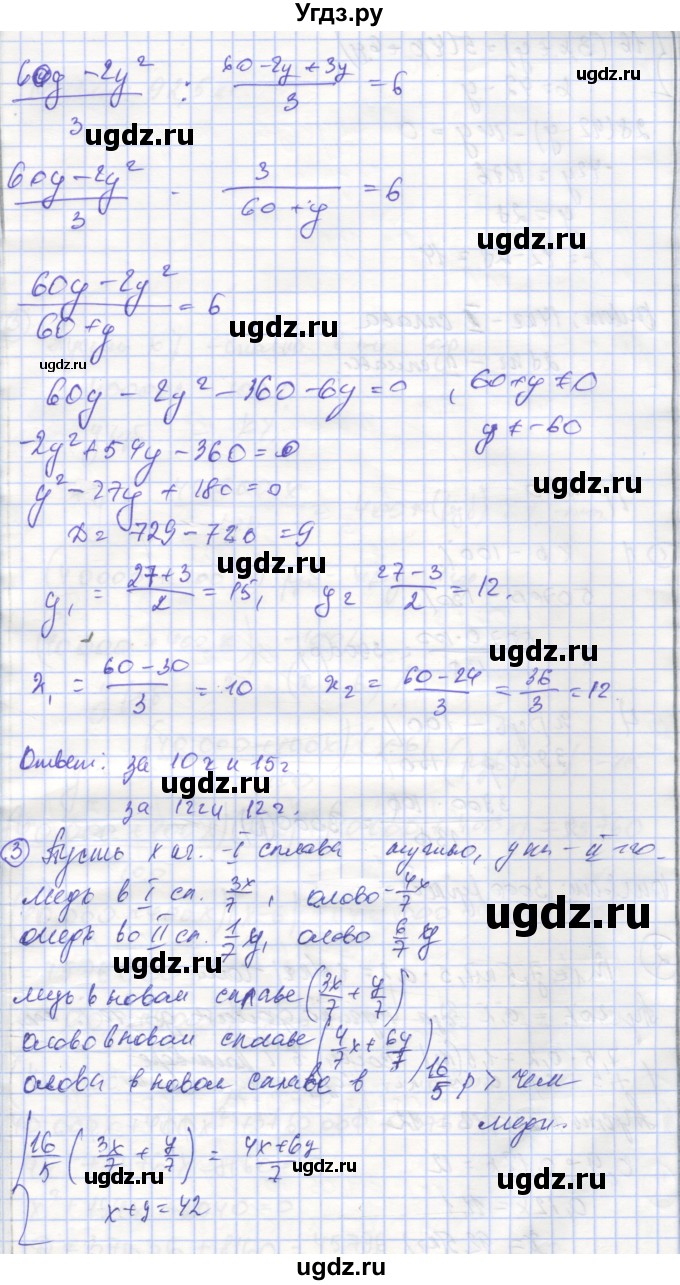 Угдз.ру
(60y - 2y²)/3 : (60-2y+3y)/3 = 6
ugdz.ru
ugdz.ru
(60y - 2y²)/3 · 3/(60+y) = 6
ugdz.ru
(60y - 2y²)/(60+y) = 6
ugdz.ru
ugdz.ru
60y - 2y² - 360 - 6y = 0, 60+y≠0
-2y² + 54y - 360 = 0 y ≠ -60
ugdz.ru
y² - 27y + 180 = 0
ugdz.ru
D = 729 - 720 = 9
ugdz.ru
y₁ = (27+3)/2 = 15, y₂ = (27-3)/2 = 12.
ugdz.ru
x₁ = (60-30)/3 = 10 x₂ = (60-24)/3 = 36/3 = 12.
Ответ: за 10ч и 15ч.
ugdz.ru
за 12ч и 12ч.
③ Пусть x кг. - I сплава нужно, y кг - II-го.
медь в I сп. 3x/7, олово - 4x/7
ugdz.ru
медь во II сп. 1/7 y, олово 6/7 y
ugdz.ru
медь в новом сплаве (3x/7 + y/7)
олово в новом сплаве (4/7 x + 6y/7)
ugdz.ru
олова в новом сплаве в 16/5 р > чем
меди.
{ 16/5 (3x/7 + y/7) = (4x+6y)/7
ugdz.ru
ugdz.ru
x+y = 42
ugdz.ru
ugdz.ru